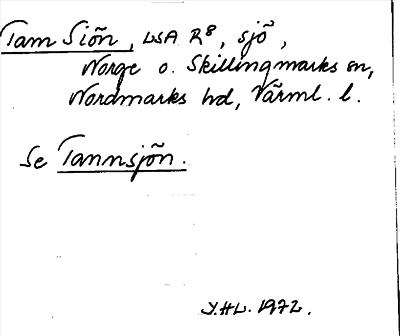 Tam Siön, LSA R8, sjö,
Norge o. Skillingmarks sn,
Nordmarks hd, Värml. l.
Se Tannsjön.
Y.HL. 1972.